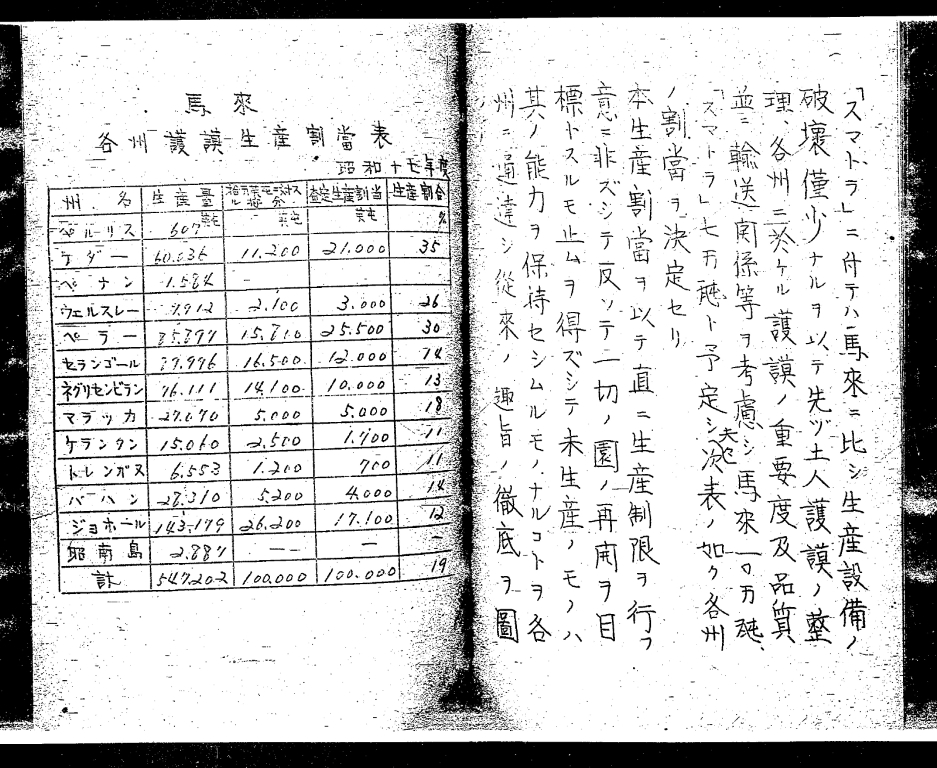 「スマトラ」ニ付テハ馬來ニ比シ生産設備ノ
破壞僅少ナルヲ以テ先ヅ土人護謨ノ整
理、各州ニ於ケル護謨ノ重要度及品質
並ニ輸送関係等ヲ考慮シ馬來一〇万瓲、
「スマトラ」七万瓲ト予定シ夫々次表ノ如ク各州
ノ割當ヲ決定セリ
本生産割當ヲ以テ直ニ生産制限ヲ行フ
意ニ非ズシテ反ソテ一切ノ園ノ再開ヲ目
標トスルモ止ムヲ得ズシテ未生産ノモノハ
其ノ能力ヲ保持セシムルモノナルコトヲ各
州ニ通達シ従來ノ趣旨ノ徹底ヲ圖
馬來
各州護謨生産割當表
昭和十七年度
州名 生産量 査定生産割当 生産割合
ペルーリス 607 英屯 英屯 英屯 %
ケダー 60.036 11.200 21.000 35
ペナン 1.584 - -
ウェルスレー 2.100 3.000 26
ペラー 25.500 30
セランゴール 16.500 12.000
ネグリセンビラン 76.111 14.100 10.000 13
マラッカ 27.070 5.000 5.000 18
ケランタン 15.060 2.500 1.700 11
トレンガヌ 6.553 1.200 700 11
パハン 28.310 5.200 4.000 14
ジョホール 143.179 26.200 17.100 12
昭南島 2.887 — — —
計 547.202 100.000 100.000 19